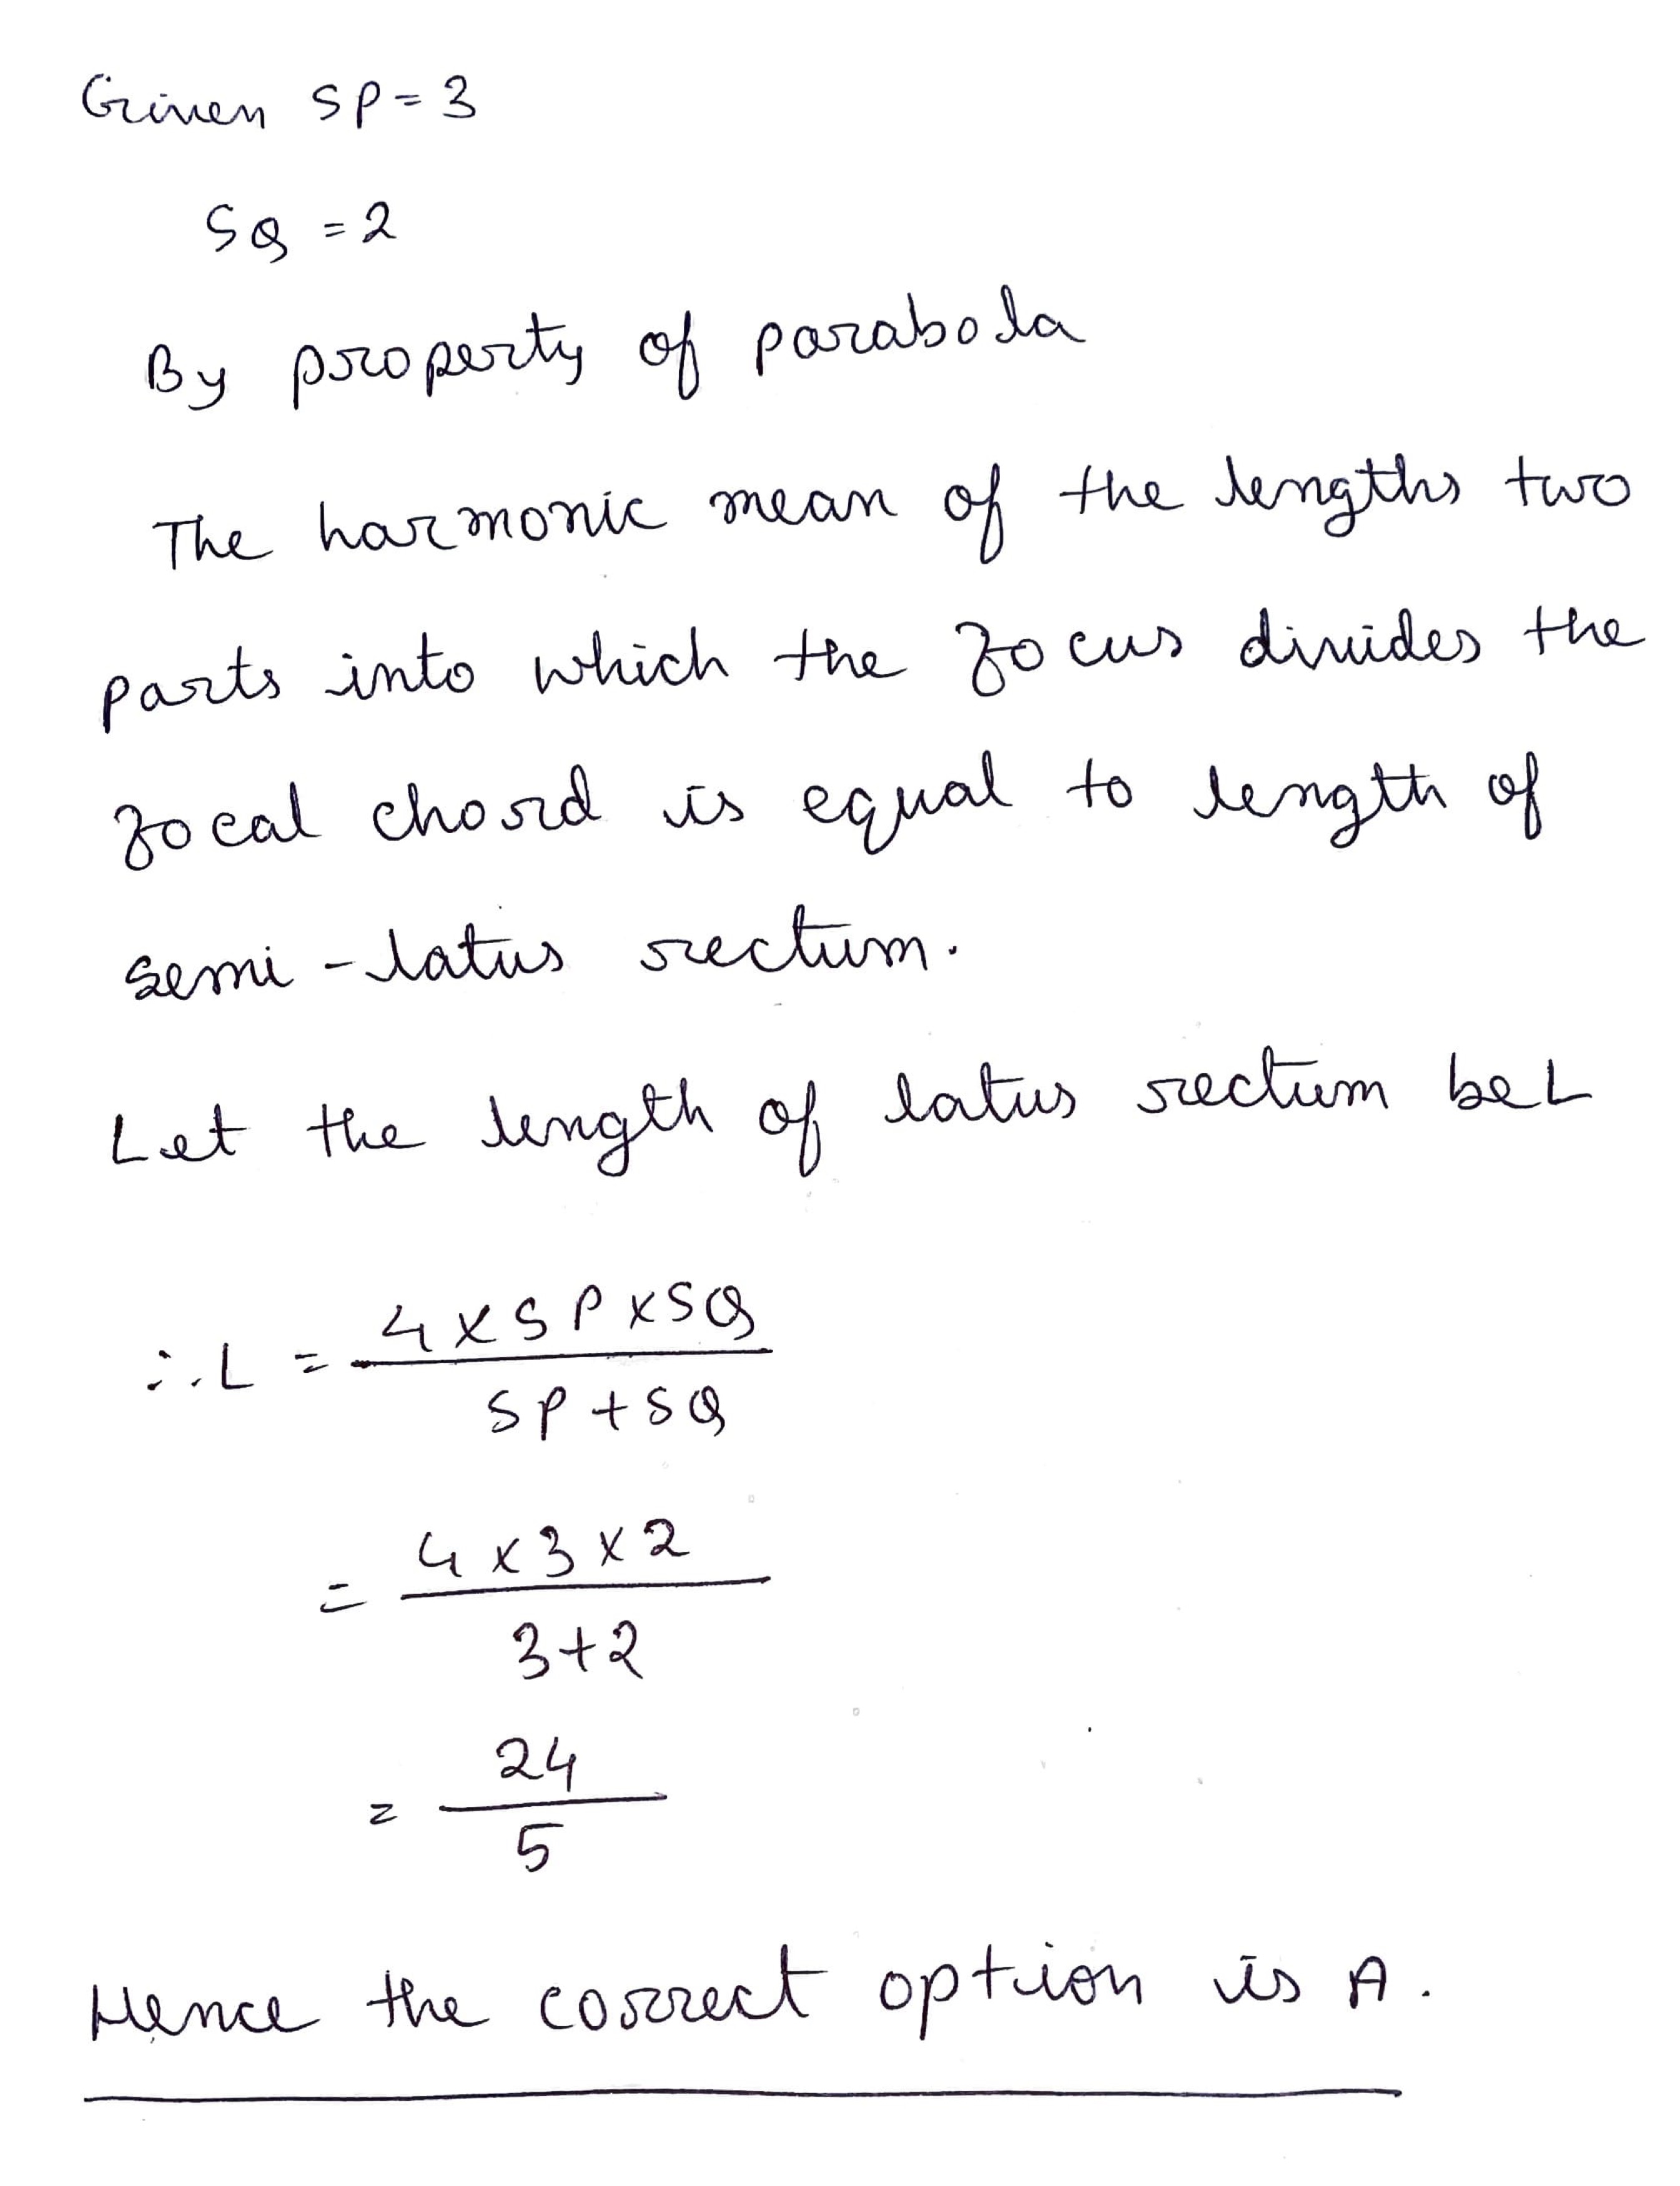 Given SP = 3
SQ = 2
By property of parabola
The harmonic mean of the lengths two
parts into which the focus divides the
focal chord is equal to length of
semi-latus rectum.
Let the length of latus rectum be L
∴ L = 4 × SP × SQ / SP + SQ
= 4 × 3 × 2 / 3 + 2
= 24 / 5
Hence the correct option is A.